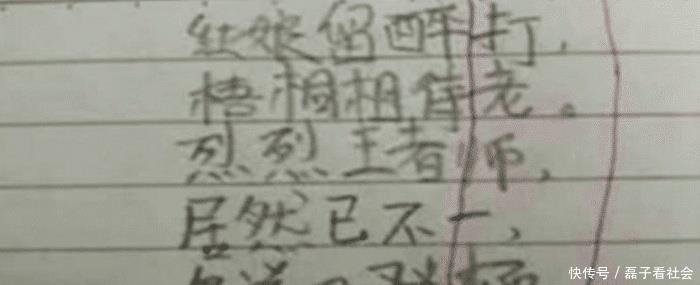 红娘留醉打,
梧桐相待老。
烈烈王者师,
居然已不一,
快传号 / 磊子看社会